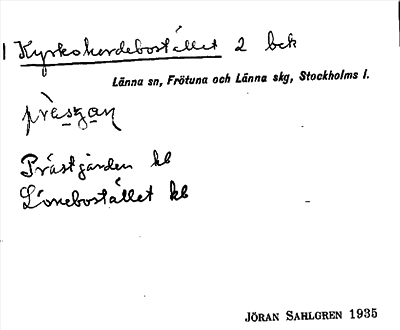 Kyrkoherdebostället 2 bek
Länna sn, Frötuna och Länna skg, Stockholms l.
Prästgården kb
Lönebostället kb
JÖRAN SAHLGREN 1935